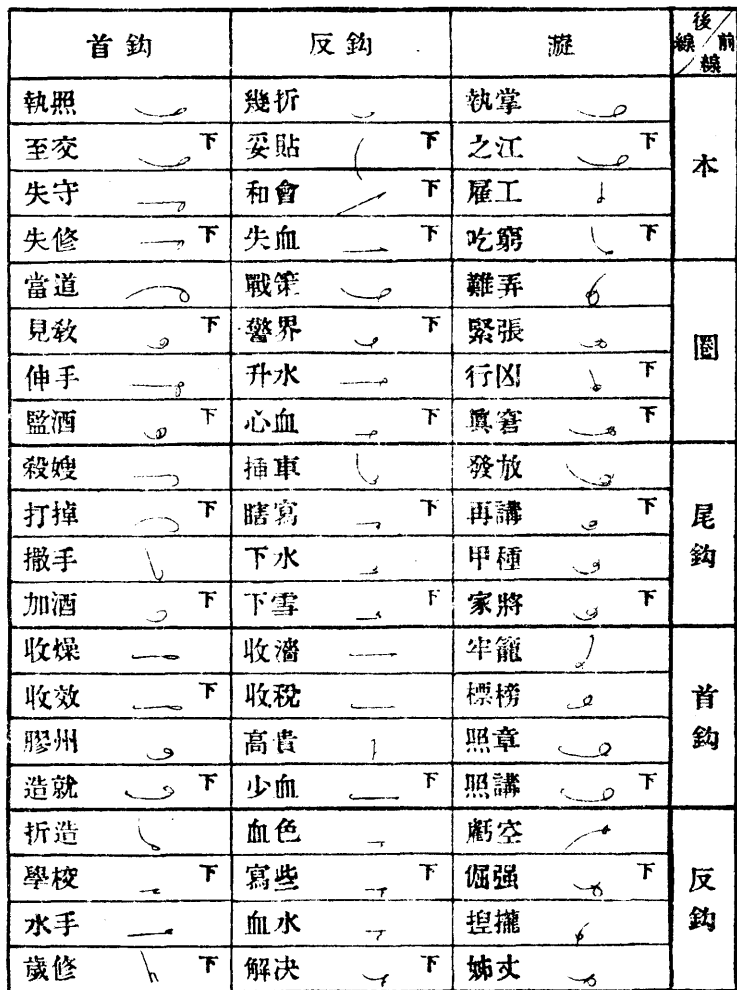 首鈎 反鈎 漩 後線 前線
執照 幾折 執掌 本
至交 下 妥貼 下 之江 下
失守 和會 下 雇工
失修 下 失血 下 吃窮 下
當道 戰策 難弄 圈
見教 下 警界 下 緊張
伸手 升水 行凶 下
監酒 下 心血 下 眞窘 下
殺嫂 插車 發放 尾鈎
打掉 下 瞎寫 下 再講 下
撒手 下水 甲種
加酒 下 下雪 下 家將 下
收燥 收濇 牢籠 首鈎
收效 下 收稅 標榜
膠州 高貴 照章
造就 下 少血 下 照講 下
折造 血色 虧空 反鈎
學校 下 寫些 下 倔强 下
水手 血水 捏攏
歲修 下 解决 下 姊丈